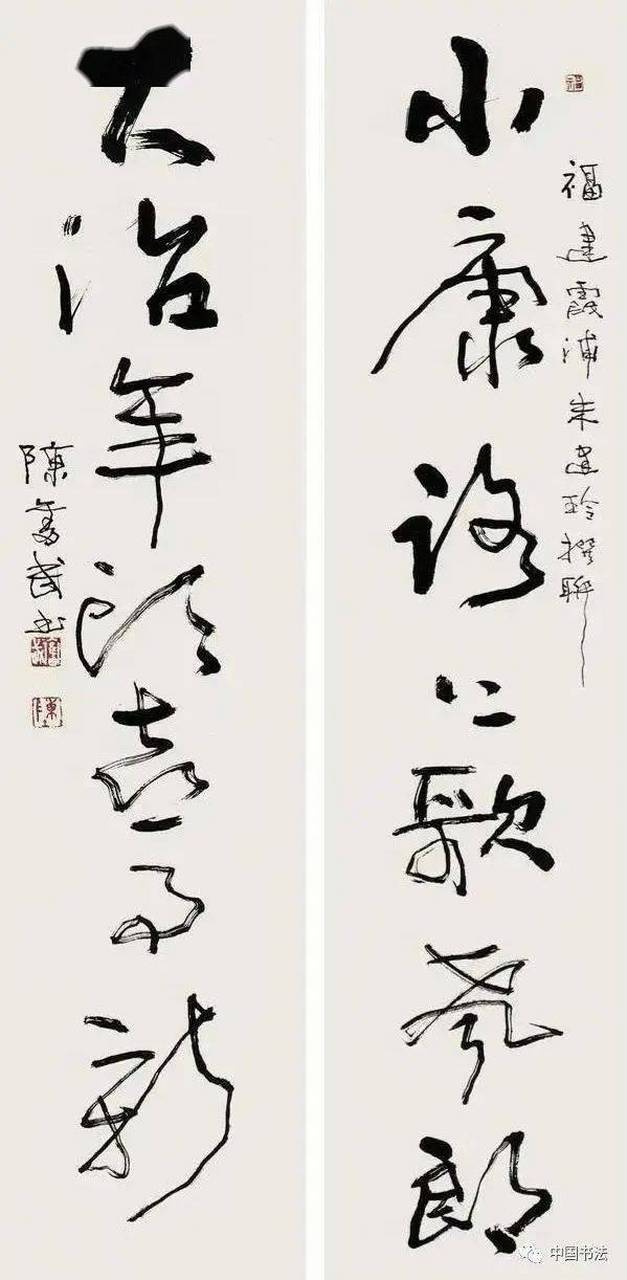 福建霞浦朱建玲撰聯
小康路上歌聲朗
大治年头喜事新
陳奮武书
陳
中国书法